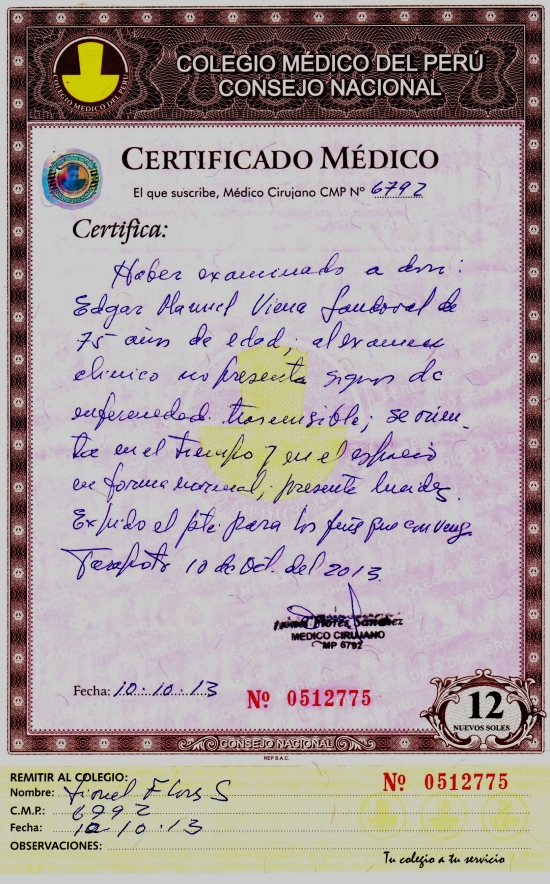 COLEGIO MÉDICO DEL PERÚ
CONSEJO NACIONAL
COLEGIO MEDICO DEL PERU
CERTIFICADO MÉDICO
El que suscribe, Médico Cirujano CMP Nº 6792
Certifica:
Haber examinado a don:
Edgar Manuel Viena Sandoval de
75 años de edad; al examen
clinico no presenta signos de
enfermedad trasmisible; se orien_
ta en el tiempo y en el espacio
en forma normal; presenta lucidez.
Expido el pte para los fines que convenga
Tarapoto 10 de Oct. del 2013.
Lionel Flores Sánchez
MEDICO CIRUJANO
MP 6792
Fecha: 10.10.13
Nº 0512775
12
NUEVOS SOLES
CONSEJO NACIONAL
REP S.A.C.
REMITIR AL COLEGIO:
Nº 0512775
Nombre: Lionel Flores S
C.M.P.: 6792
Fecha: 10.10.13
OBSERVACIONES:
Tu colegio a tu servicio